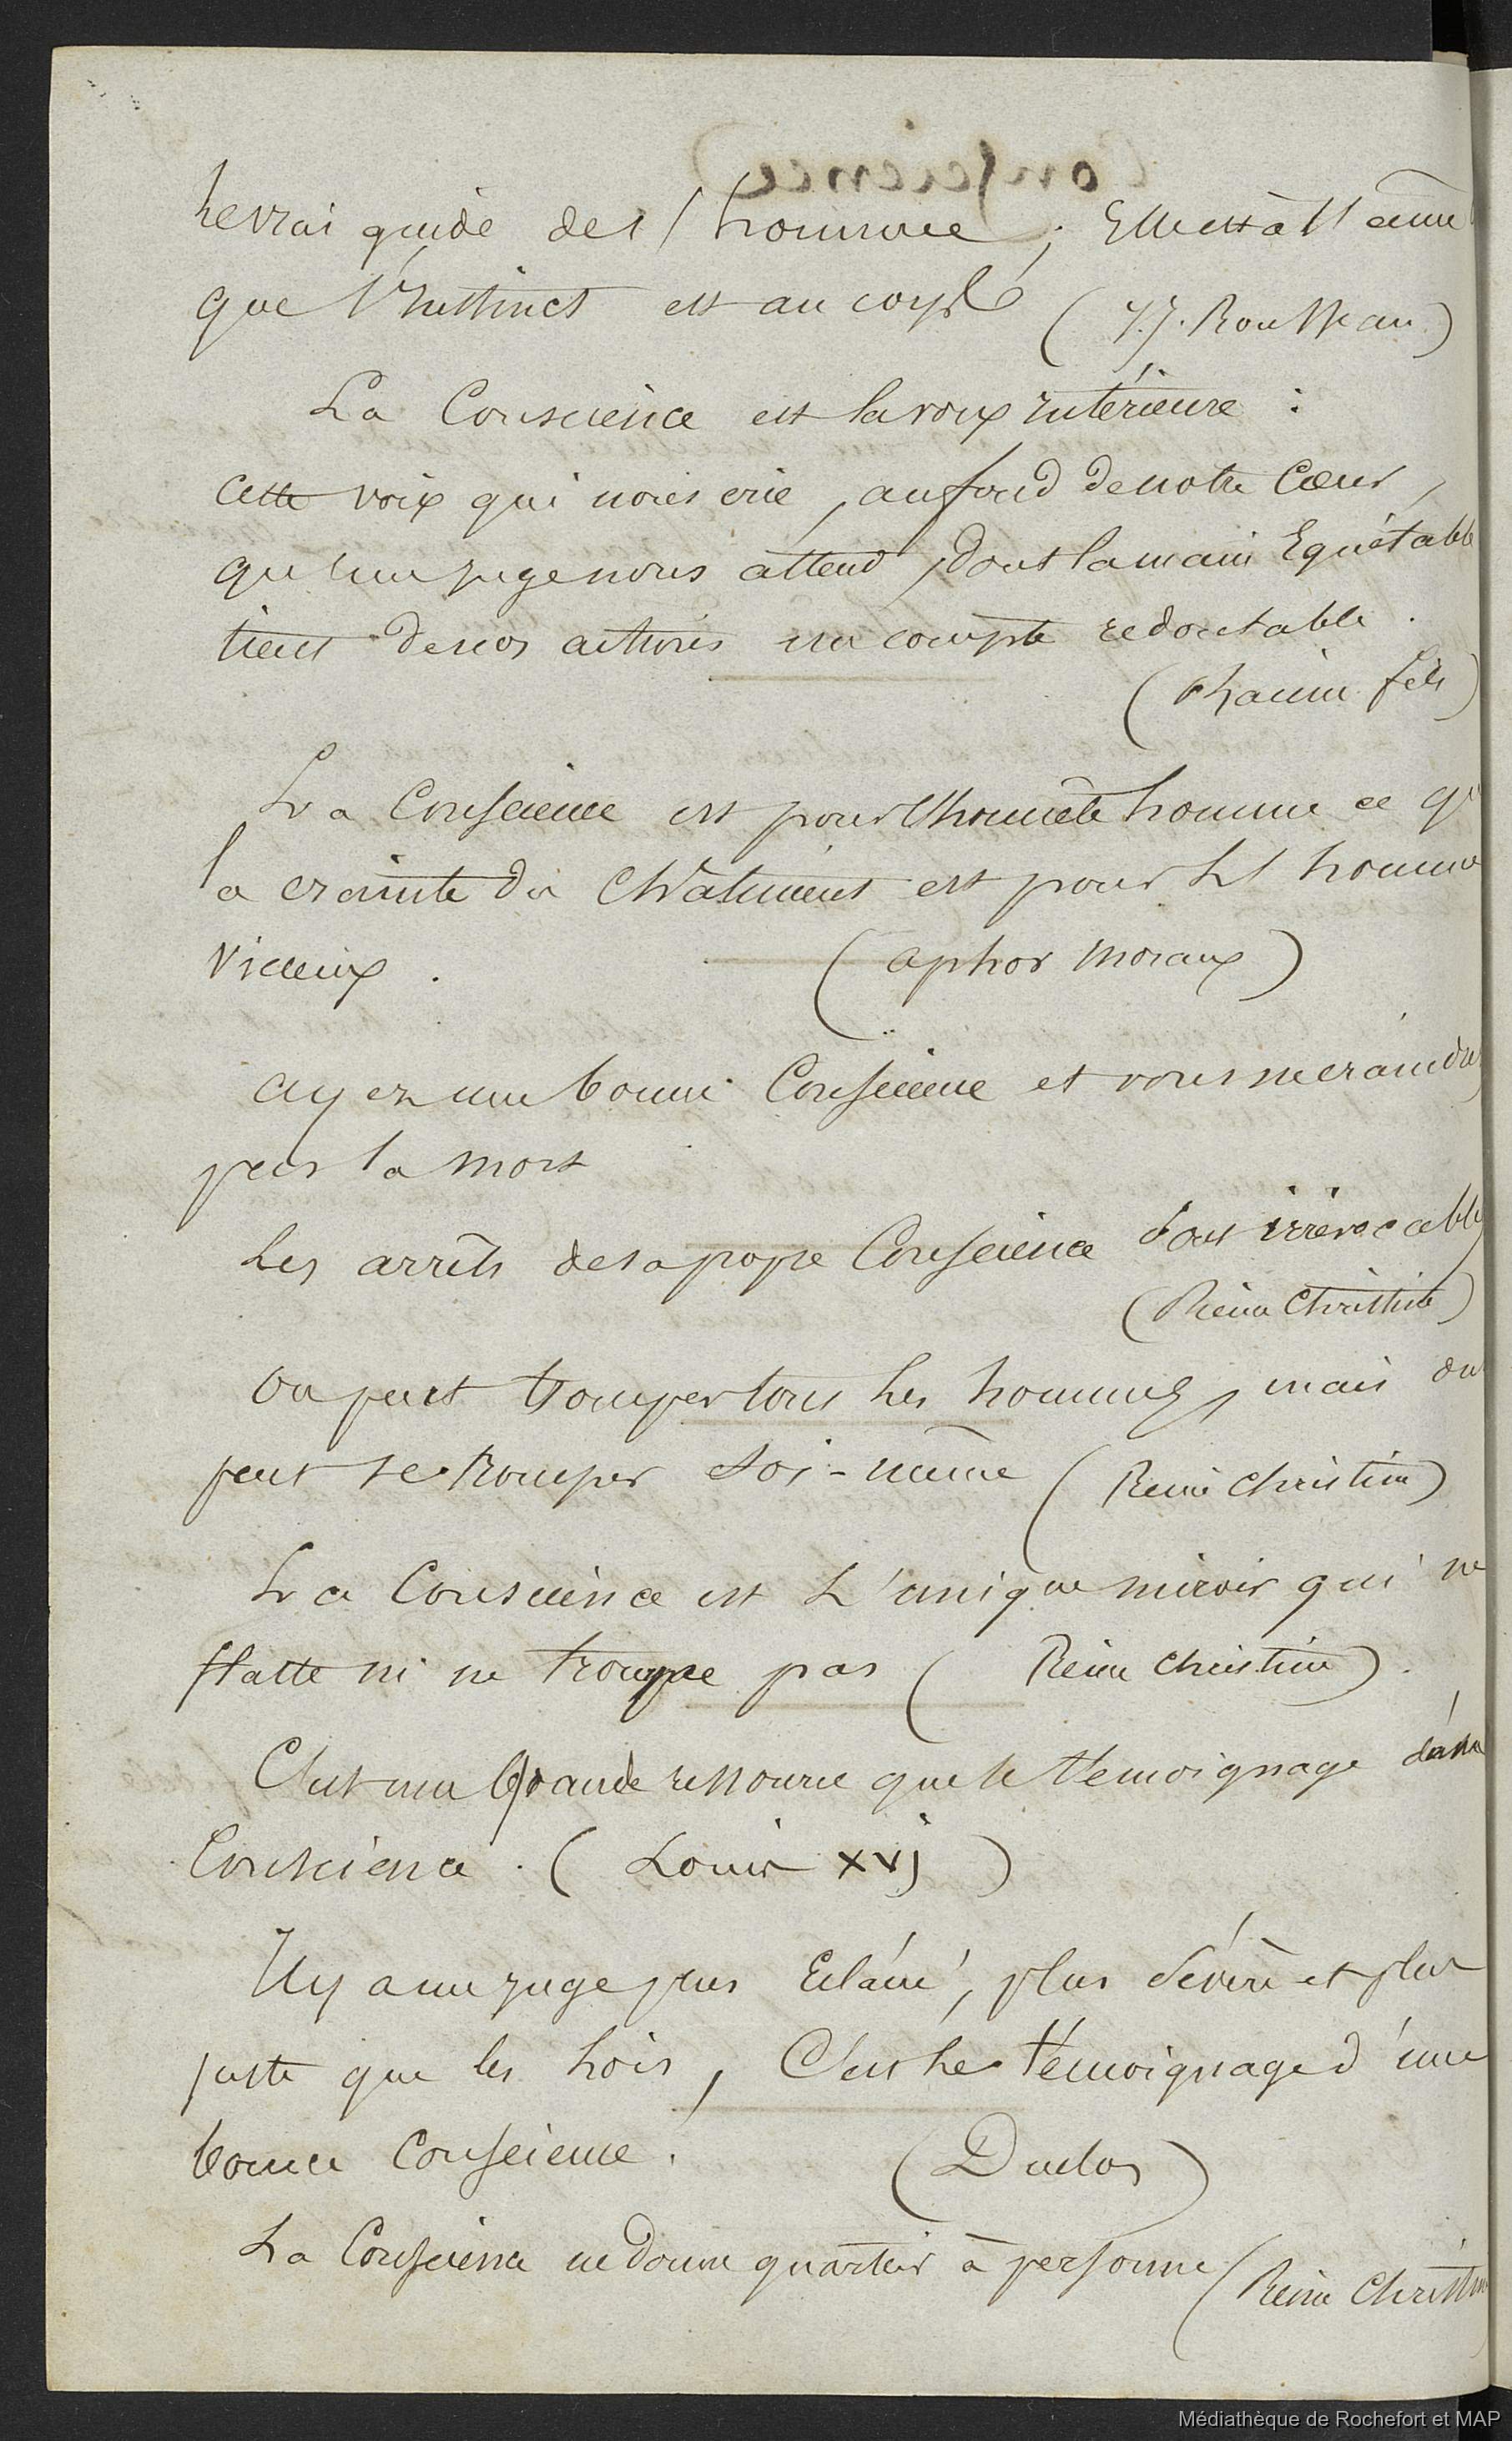 le vrai guide de l'homme ; Elle est à l'âme
que l'Instinct est au corps (J.J. Rousseau)
La Conscience est la voix intérieure :
Cette voix qui nous crie, au fond de notre Cœur,
qu'un juge nous attend, dont la main Equitable
tient de nos actions un compte redoutable.
(Racine fils)
La Conscience est pour l'honnête homme ce q
la crainte du Châtiment est pour l'homme
Vicieux. (aphor Moraux)
ayez une bonne Conscience et vous ne craindre
pas la Mort
Les arrêts de sa propre Conscience sont irrévocable
(Reine Christine)
On peut tromper tous les hommes, mais on
peut se tromper soi-même (Reine Christine)
La Conscience est L'unique miroir qui ne
flatte ni ne trompe pas (Reine Christine).
C'est une Grande ressource que le témoignage de sa
Conscience. (Louis XVJ)
Il y a un juge plus Eclairé, plus Sévère et plus
juste que les Lois, C'est le témoignage d'une
bonne Conscience. (Duclos)
La Conscience ne donne quartier à personne (Reine Christine
Médiathèque de Rochefort et MAP